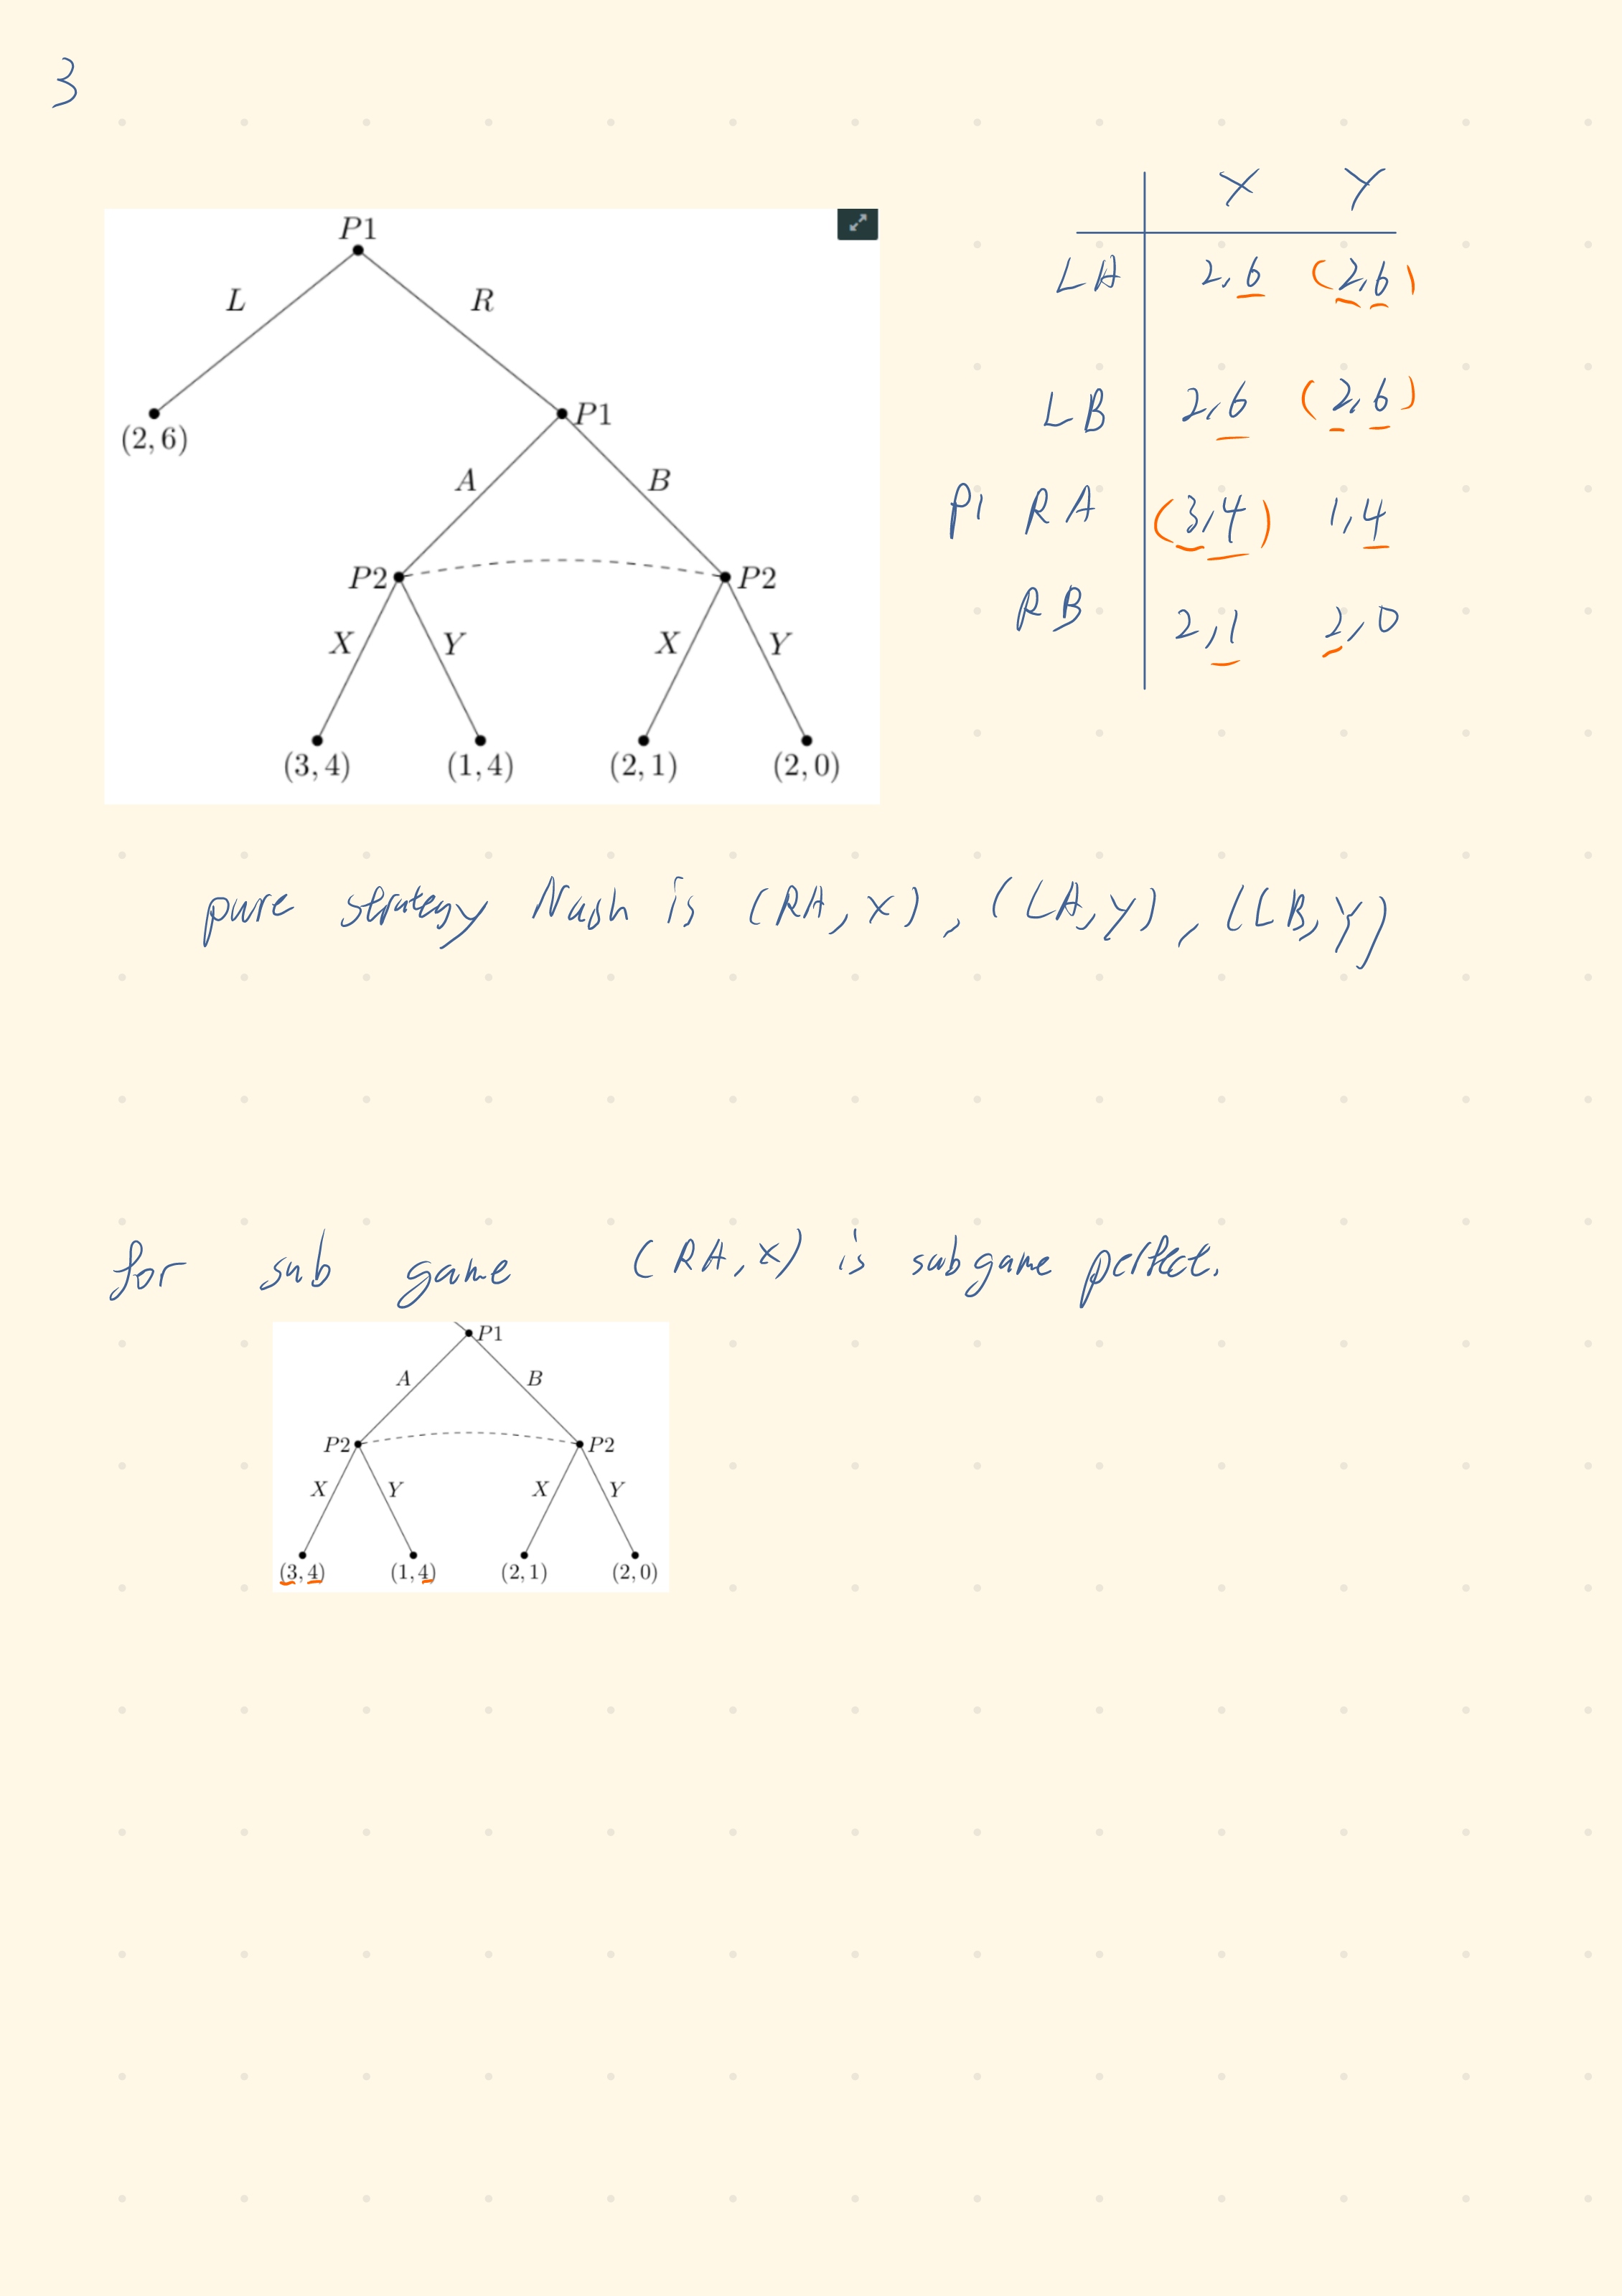 3
P1
L R
(2, 6)
P1
A B
P2 P2
X Y X Y
(3, 4) (1, 4) (2, 1) (2, 0)
X Y
LA 2,6 (2,6)
LB 2,6 (2,6)
P1 RA (3,4) 1,4
RB 2,1 2,0
pure strategy Nash is (RA, X), (LA, Y), (LB, Y)
for sub game (RA, X) is subgame perfect.
P1
A B
P2 P2
X Y X Y
(3, 4) (1, 4) (2, 1) (2, 0)